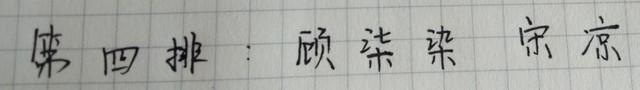 第四排：顾柒染 宋凉